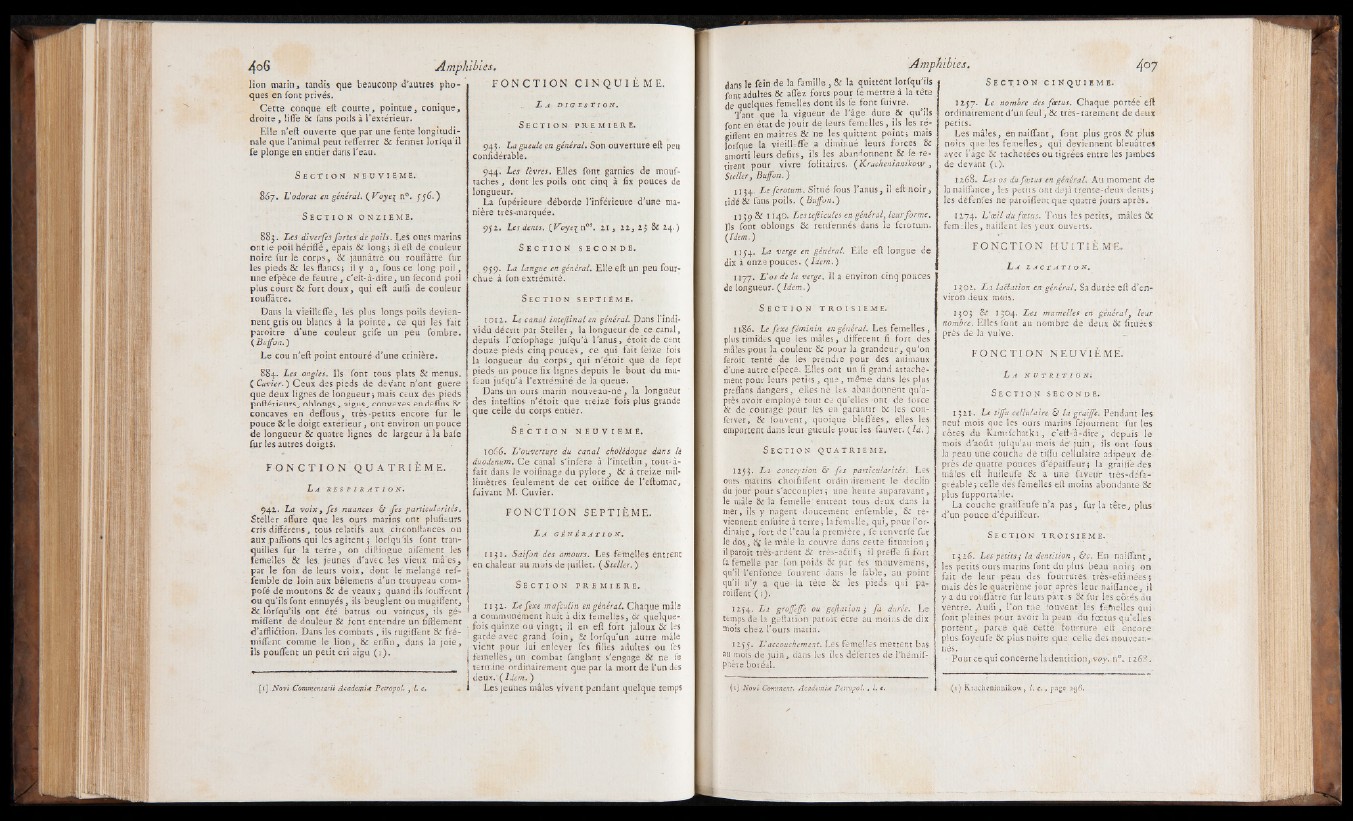 406 Amphibies.
lion marin, tandis que beaucoup d'autres pho-
ques en sont privés.
Cette conque est courte, pointue, conique,
droite, lisse & sans poils à l'extérieur.
Elle n'est ouverte que par une fente longitudi-
nale que l'animal peut resserrer & fermer lorsqu'il
se plonge en entier dans l'eau.
SECTION NEUVIÈME.
867. L'odorat en général. (Voyez n°. 556.)
SECTION ONZIEME.
883. Les diverses sortes de poils. Les ours marins
ont le poil hérissé, épais & long; il est de couleur
noire sur le corps, & jaunâtre ou roussâtre sur
les pieds & les flancs; il y a, sous ce long poil,
une espèce de feutre, c'est-à-dire, un second poil
plus court & fort doux, qui est aussi de couleur
roussâtre.
Dans la vieillesse, les plus longs poils devien-
nent gris ou blancs à la pointe, ce qui les fait
paroître d'une couleur grise un peu sombre.
(Buffon.)
Le cou n'est point entouré d'une crinière.
884. Les ongles. Ils sont tous plats & menus.
(Cuvier.) Ceux des pieds de devant n'ont guère
que deux lignes de longueur; mais ceux des pieds
postérieurs, oblongs, aigus, convexes en dessus &
concaves en dessous, très-petits encore sur le
pouce & le doigt extérieur, ont environ un pouce
de longueur & quatre lignes de largeur à la base
sur les autres doigts.
FONCTION QUATRIÈME.
LA RESPIRATION.
942. La voix, ses nuances & ses particularités.
Steller assure que les ours marins ont plusieurs
cris différens, tous relatifs aux circonstances ou
aux passions qui les agitent; lorsqu'ils sont tran-
quilles sur la terre, on distingue aisément les
femelles & les jeunes d'avec les vieux mâles,
par le son de leurs voix, dont le mélange res-
semble de loin aux bêlemens d'un troupeau com-
posé de moutons & de veaux; quand ils souffrent
ou qu'ils sont ennuyés, ils beuglent ou mugissent,
& lorsqu'ils ont été battus ou vaincus, ils gé-
missent de douleur & font entendre un sifflement
d'affliction. Dans les combats, ils rugissent & fré-
missent comme le lion, & enfin, dans la joie,
ils poussent un petit cri aigu (1).
(1) Novi Commentarii Academiæ Petropol., l. c.
FONCTION CINQUIÈME.
LA DIGESTION.
SECTION PREMIERE.
943. La gueule en général. Son ouverture est peu
considérable.
944. Les lèvres. Elles sont garnies de mous-
taches, dont les poils ont cinq à six pouces de
longueur.
La supérieure déborde l'inférieure d'une ma-
nière très-marquée.
952. Les dents. (Voyez nos. 21, 22, 23 & 24.)
SECTION SECONDE.
959. La langue en général. Elle est un peu four-
chue à son extrémité.
SECTION SEPTIÈME.
1012. Le canal intestinal en général. Dans l'indi-
vidu décrit par Steller, la longueur de ce canal,
depuis l'œsophage jusqu'à l'anus, étoit de cent
douze pieds cinq pouces, ce qui fait seize fois
la longueur du corps, qui n'étoit que de sept
pieds un pouce six lignes depuis le bout du mu-
seau jusqu'à l'extrémité de la queue.
Dans un ours marin nouveau-né, la longueur
des intestins n'étoit que treize fois plus grande
que celle du corps entier.
SECTION NEUVIEME.
1066. L'ouverture du canal cholédoque dans le
duodenum. Ce canal s'insère à l'intestin, tout-à-
fait dans le voisinage du pylore, & à treize mil-
limètres seulement de cet orifice de l'estomac,
suivant M. Cuvier.
FONCTION SEPTIÈME.
LA GÉNÉRATION.
1131. Saison des amours. Les femelles entrent
en chaleur au mois de juillet. (Steller.)
SECTION PREMIERE.
1132. Le sexe masculin en général. Chaque mâle
a communément huit à dix femelles, & quelque-
fois quinze ou vingt; il en est fort jaloux & les
garde avec grand soin, & lorsqu'un autre mâle
vient pour lui enlever ses filles adultes ou ses
femelles, un combat sanglant s'engage & ne se
termine ordinairement que par la mort de l'un des
deux. (Idem.)
Les jeunes mâles vivent pendant quelque temps
Amphibies. 407
dans le sein de la famille, & la quittent lorsqu'ils
sont adultes & assez forts pour se mettre à la tête
de quelques femelles dont ils se font suivre.
Tant que la vigueur de l'âge dure & qu'ils
sont en état de jouir de leurs femelles, ils les ré-
gissent en maîtres & ne les quittent point; mais
lorsque la vieillesse a diminué leurs forces &
amorti leurs desirs, ils les abandonnent & se re-
tirent pour vivre solitaires. (Kracheninnikow,
Steller, Buffon.)
1134. Le scrotum. Situé sous l'anus, il est noir,
ridé & sans poils. (Buffon.)
1139 & 1140. Les testicules en général, leur forme.
Ils sont oblongs & renfermés dans le scrotum.
(Idem.)
1154. La verge en général. Elle est longue de
dix à onze pouces. (Idem.)
1177. L'os de la verge. Il a environ cinq pouces
de longueur. (Idem.)
SECTION TROISIEME.
1186. Le sexe féminin en général. Les femelles,
plus timides que les mâles, diffèrent si fort des
mâles pour la couleur & pour la grandeur, qu'on
seroit tenté de les prendre pour des animaux
d'une autre espèce. Elles ont un si grand attache-
ment pour leurs petits, que, même dans les plus
pressans dangers, elles ne les abandonnent qu'a-
près avoir employé tout ce qu'elles ont de force
& de courage pour les en garantir & les con-
server, & souvent, quoique blessées, elles les
emportent dans leur gueule pour les sauver. (Id.)
SECTION QUATRIEME.
1253. La conception & ses particularités. Les
ours marins choisissent ordinairement le déclin
du jour pour s'accoupler; une heure auparavant,
le mâle & la femelle entrent tous deux dans la
mer, ils y nagent doucement ensemble, & re-
viennent ensuite à terre; la femelle, qui, pour l'or-
dinaire, sort de l'eau la première, se renverse sur
le dos, & le mâle la couvre dans cette situation;
il paroît très-ardent & très-actif; il presse si fort
sa femelle par son poids & par ses mouvemens,
qu'il l'enfonce souvent dans le sable, au point
qu'il n'y a que la tête & les pieds qui pa-
roissent (1).
1254. La grossesse ou gestation; sa durée. Le
temps de la gestation paroît être au moins de dix
mois chez l'ours marin.
1255. L'accouchement. Les femelles mettent bas
au mois de juin, dans les îles désertes de l'hémis-
phère boréal.
(1) Novi Comment. Academiæ Petropol., l. c.
SECTION CINQUIEME.
1257. Le nombre des fœtus. Chaque portée est
ordinairement d'un seul, & très-rarement de deux
petits.
Les mâles, en naissant, sont plus gros & plus
noirs que les femelles, qui deviennent bleuâtres
avec l'âge & tachetées ou tigrées entre les jambes
de devant (1).
1268. Les os du fœtus en général. Au moment de
la naissance, les petits ont déjà trente-deux dents;
les défenses ne paroissent que quatre jours après.
1274. L'œil du fœtus. Tous les petits, mâles &
femelles, naissent les yeux ouverts.
FONCTION HUITIÈME.
LA LACTATION.
1302. La lactation en général. Sa durée est d'en-
viron deux mois.
1303 & 1304. Les mamelles en général, leur
nombre. Elles sont au nombre de deux & situées
près de la vulve.
FONCTION NEUVIÈME.
LA NUTRITION.
SECTION SECONDE.
1321. Le tissu cellulaire & la graisse. Pendant les
neuf mois que les ours marins séjournent sur les
côtes du Kamtschatka, c'est-à-dire, depuis le
mois d'août jusqu'au mois de juin, ils ont sous
la peau une couche de tissu cellulaire adipeux de
près de quatre pouces d'épaisseur; la graisse des
mâles est huileuse & a une saveur très-désa-
gréable; celle des femelles est moins abondante &
plus supportable.
La couche graisseuse n'a pas, sur la tête, plus
d'un pouce d'épaisseur.
SECTION TROISIEME.
1326. Les petits; la dentition, &c. En naissant,
les petits ours marins sont du plus beau noir; on
fait de leur peau des fourrures très-estimées;
mais dès le quatrième jour après leur naissance, il
y a du roussâtre sur leurs pattes & sur les côtés du
ventre. Aussi, l'on tue souvent les femelles qui
sont pleines pour avoir la peau du fœtus qu'elles
portent, parce que cette fourrure est encore
plus soyeuse & plus noire que celle des nouveau-
nés.
Pour ce qui concerne la dentition, voy. n°. 1268.
(1) Kracheninnikow, l. c., page 296.